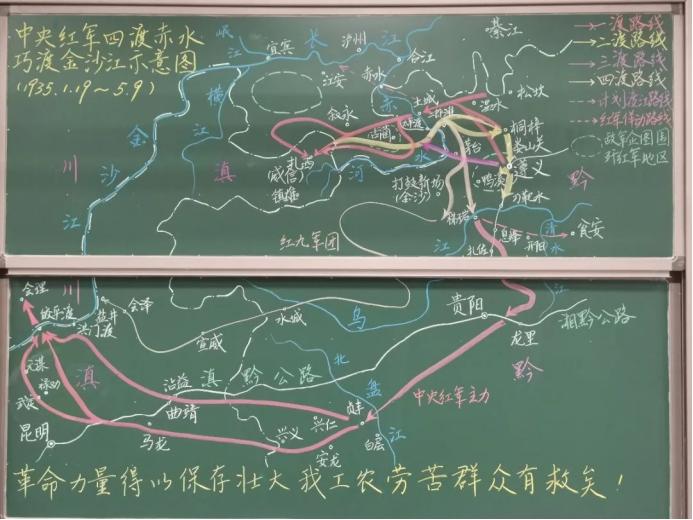 中央红军四渡赤水
巧渡金沙江示意图
(1935.1.19~5.9)
岷江
宜宾
长江
泸州
合江
綦江
江安
横江
金沙江
川
滇
叙永
赤水
赤
土城
温水
松坎
古蔺
扎西
(威信)
镇雄
河
水
茅台
桐梓
娄山关
遵义
鸭溪
打鼓新场
(金沙)
黔
红九军团
江
扎佐
息烽
开阳
清水
一渡路线
二渡路线
三渡路线
四渡路线
计划渡江路线
红军佯动路线
敌军企图围
歼红军地区
川
会理
皎平渡
洪门渡
盐井
会泽
宣威
水城
乌
江
贵阳
龙里
湘黔公路
黔
元谋
禄劝
武定
昆明
滇
沾益
曲靖
马龙
滇黔公路
北盘江
兴义
兴仁
安龙
白层
中央红军主力
革命力量得以保存壮大 我工农劳苦群众有救矣！